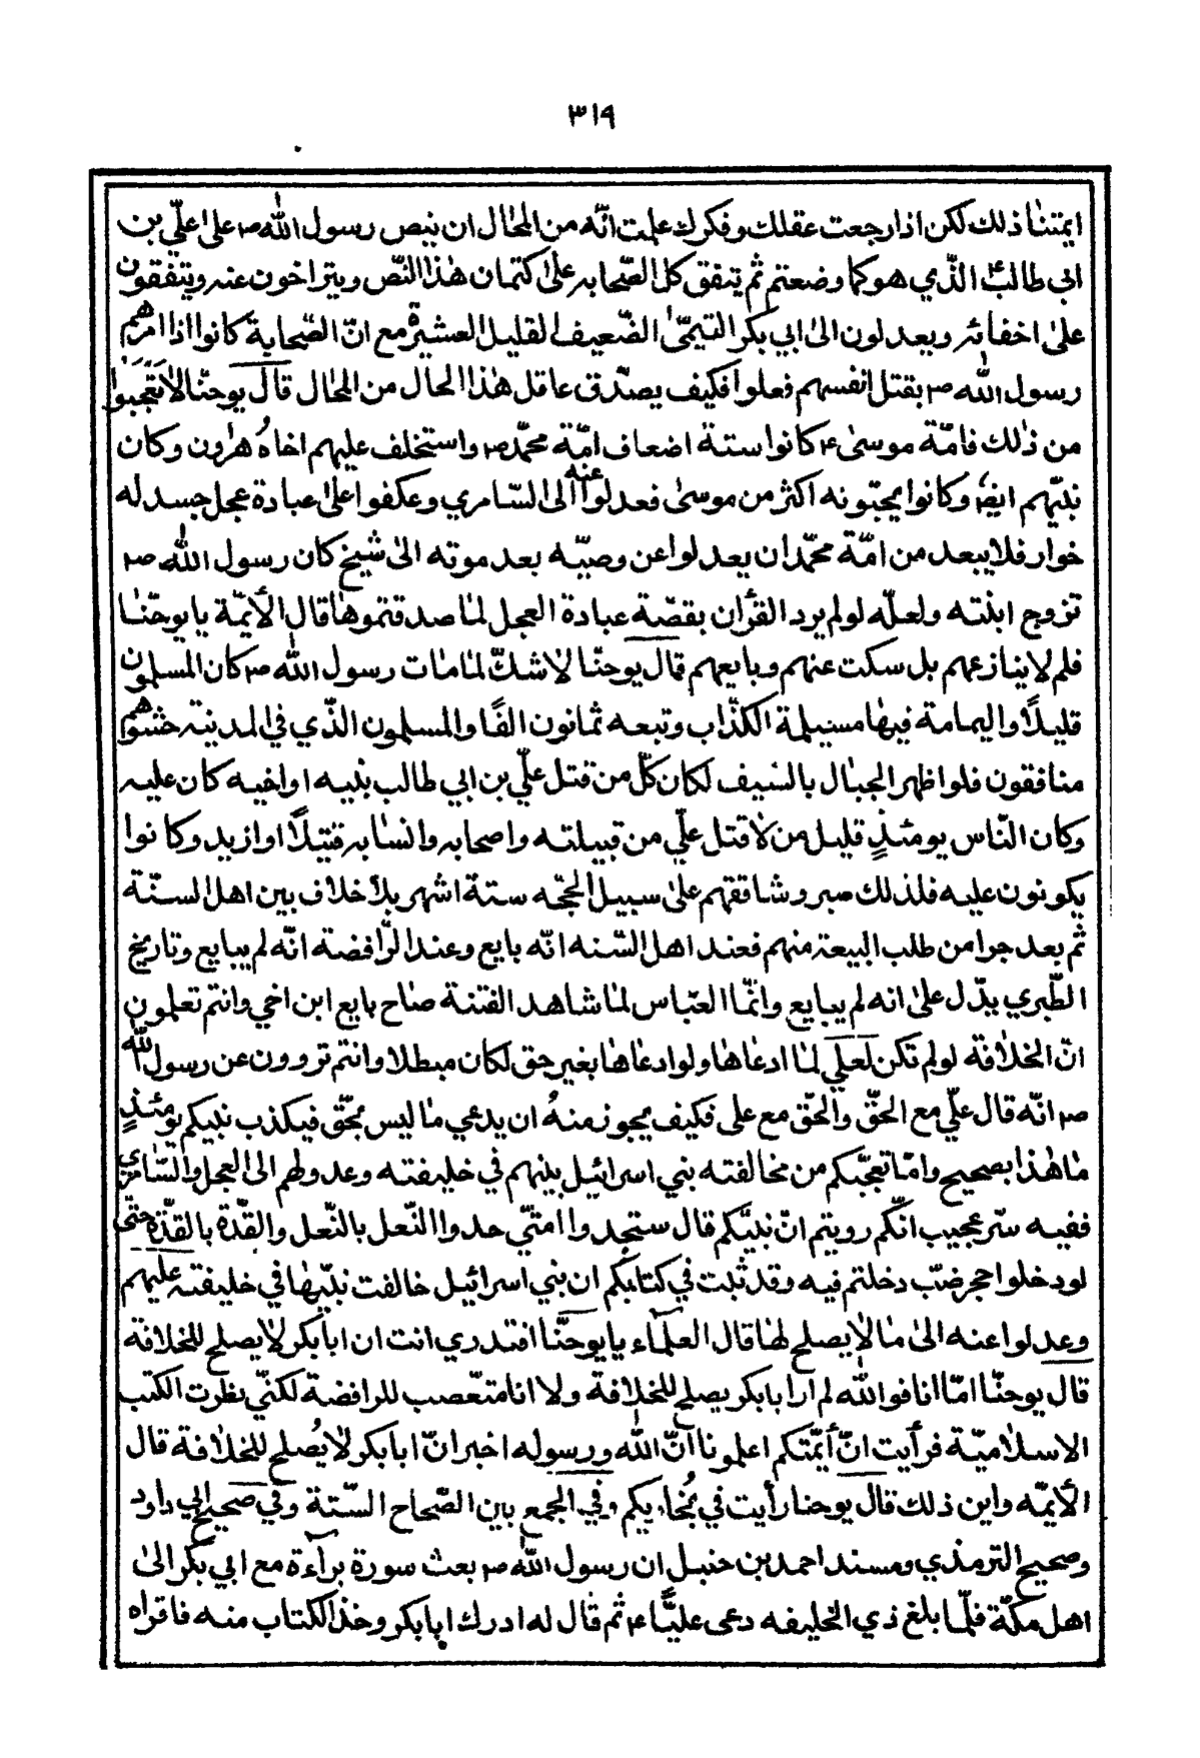 ٣١٩
ايمتنا ذلك لكن اذا رجعت عقلك وفكرك علمت انّه من المحال ان ينص رسول الله ص على علّي بن
ابي طالب ع الّذي هو كما وضعتم ثم يتفق كل الصّحابه علىٰ كتمان هٰذا النّص ويتراخون عنه ويتفقون
علىٰ اخفائه ويعدلون الىٰ ابي بكر التيمّى الضّعيف القليل العشيرة مع انّ الصّحابة كانوا اذا امرهم
رسول الله ص بقتل انفسهم فعلوا فكيف يصدّق عاقل هٰذا الحال من المحال قال يوحنّا لا تتعجبوا
من ذٰلك فامّة موسىٰ ع كانوا ستة اضعاف امّة محمّد ص واستخلف عليهم اخاه هٰرون وكان
نبيّهم ايض وكانوا يحبّونه اكثر من موسىٰ فعدلوا عنه الى السّامري وعكفوا علىٰ عبادة عجل جسد له
خوار فلا يبعد من امّة محمّد ان يعدلوا عن وصيّه بعد موته الىٰ شيخ كان رسول الله ص
تزوج ابنته ولعلّه لو لم يرد القرآن بقصّة عبادة العجل لما صدقتموها قال الأيمّة يا يوحنّا
فلم لا ينازعهم بل سكت عنهم وبايعهم قال يوحنّا لا شكّ لما مات رسول الله ص كان المسلمون
قليلًا واليمامة فيها مسيلمة الكذّاب وتبعه ثمانون الفًا والمسلمون الذّي في المدينة حشوهم
منافقون فلو اظهر الجبال بالسّيف لكان كلّ من قتل علّي بن ابي طالب بنيه او اخيه كان عليه
وكان النّاس يومئذٍ قليل من لا قتل علّي من قبيلته واصحابه وانسابه قتيلًا او ازيد وكانوا
يكونون عليه فلذلك صبر وشاققهم علىٰ سبيل الحجّه ستة اشهر بلا خلاف بين اهل السنّة
ثم بعد جرا من طلب البيعة منهم فعند اهل السّنه انّه بايع وعند الرّافضة انّه لم يبايع وتاريخ
الطّبري يدّل علىٰ انه لم يبايع وانّما العبّاس لما شاهد الفتنة صاح بايع ابن اخي وانتم تعلمون
انّ الخلافة لو لم تكن لعلي لما ادعاها ولو ادعاها بغير حق لكان مبطلا وانتم تروون عن رسول الله
ص انّه قال علّي مع الحقّ والحقّ مع على فكيف يجوز منهُ ان يدعي ما ليس بحّق فيكذب نبيكم يومئذٍ
ما هٰذا بصحيح وامّا تعجّبكم من مخالفته بني اسرائيل بينهم في خليفته وعدولهم الى العجل والسّامري
ففيه سّر عجيب انّكم رويتم انّ نبيّكم قال ستجدوا امتّي حدوا النّعل بالنّعل والقذّة بالقذّة حتّى
لو دخلوا حجر ضبّ دخلتم فيه وقد ثبت في كتابكم ان بني اسرائيل خالفت نبيّها في خليفته عليهم
وعدلوا عنه الىٰ ما لا يصلح لها قال العلماء يا يوحنّا افتدري انت ان ابا بكر لا يصلح للخلافة
قال يوحنّا امّا انا فوالله لم ار ابا بكر يصلح للخلافة ولا انا متعصب للرافضة لكنّي نظرت الكتب
الاسلاميّة فرأيت انّ أيمّتكم اعلمونا انّ الله ورسوله اخبر انّ ابا بكر لا يُصلح للخلافة قال
الأيمّه واين ذلك قال يوحنا رأيت في بُخاريكم وفي الجمع بين الصّحاح السّتة وفي صحيح ابي داود
وصحيح الترمذي ومسند احمد بن حنبل ان رسول الله ص بعث سورة برآءة مع ابي بكر الىٰ
اهل مكّة فلّما بلغ ذي الخليفه دعى عليًّا ع ثم قال له ادرك ابا بكر وخذ الكتاب منه فاقراه